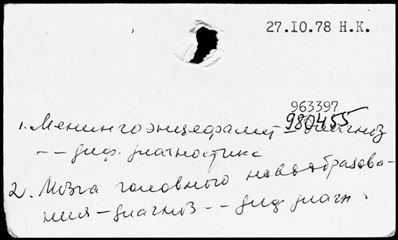 27.10.78 Н.К.
963397
980455
1. Менингоэнцефалит – диагноз
-- диф. диагностика
2. Мозга головного новообразова-
ния – диагноз -- диф. диагн.